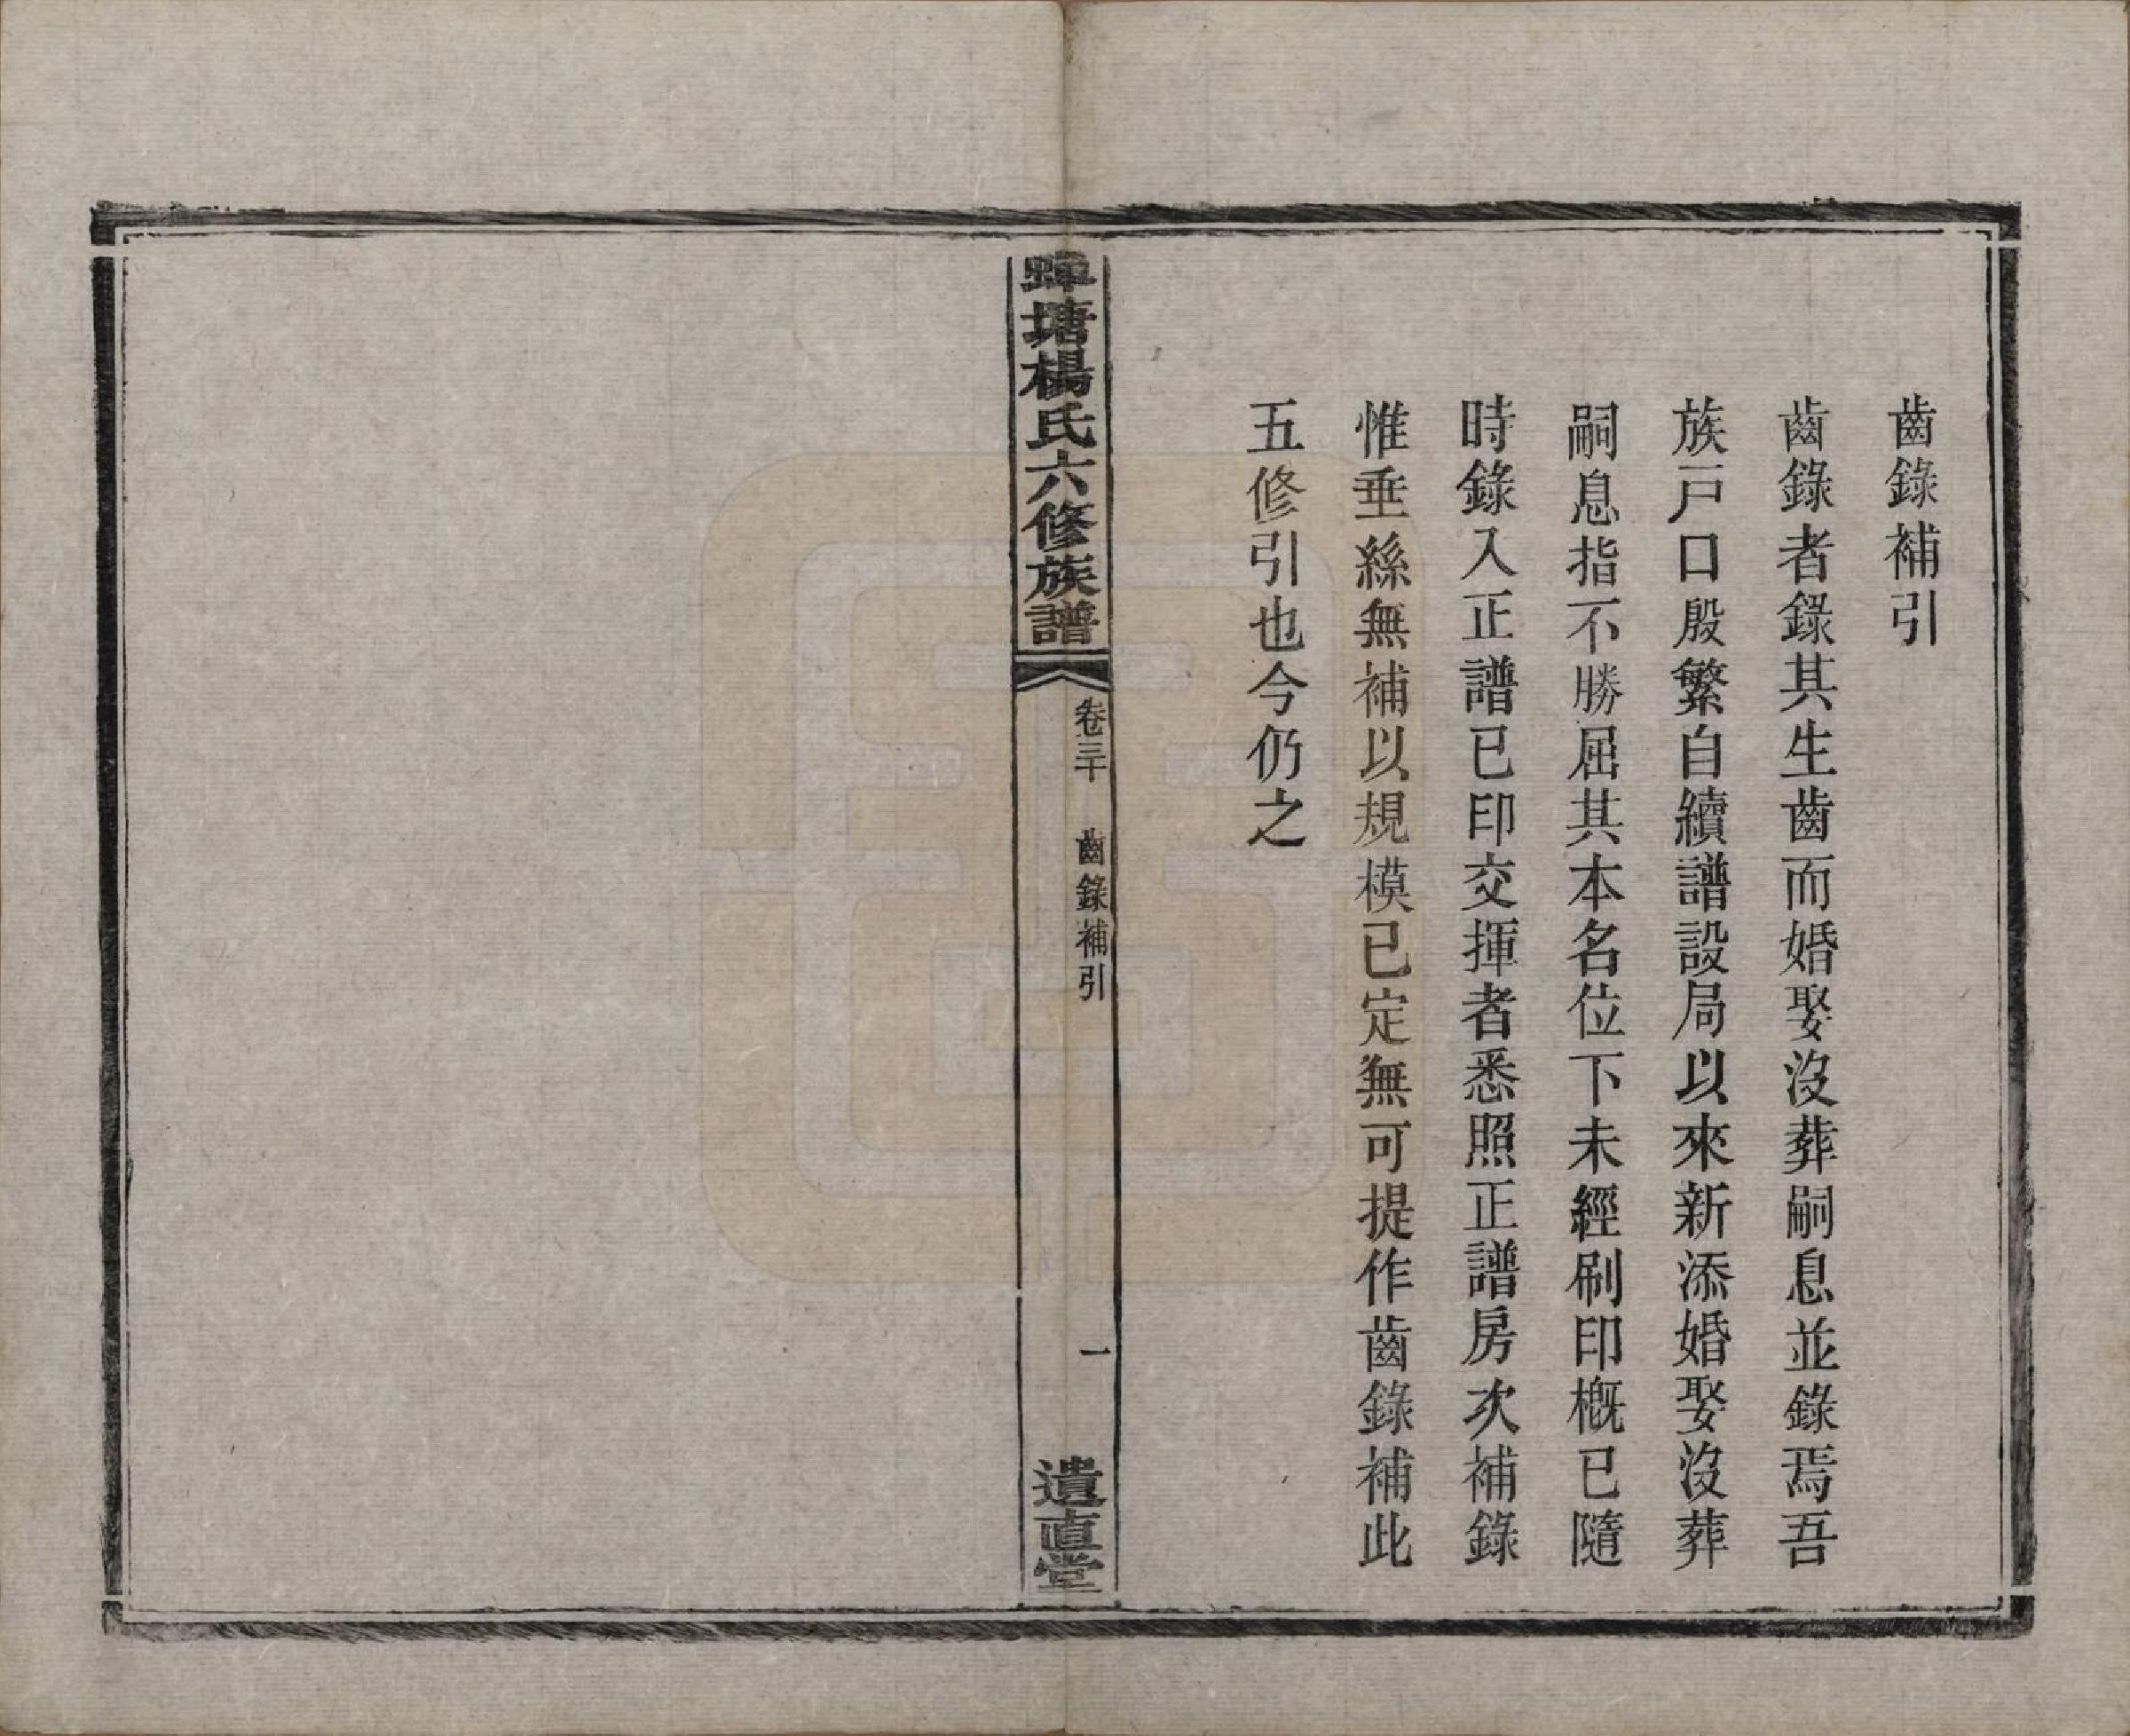 齒錄補引
齒錄者錄其生齒而婚娶沒葬嗣息並錄焉吾
族戸口殷繁自續譜設局以來新添婚娶沒葬
嗣息指不勝屈其本名位下未經刷印概已隨
時錄入正譜已印交揮者悉照正譜房次補錄
惟垂絲無補以規模已定無可提作齒錄補此
五修引也今仍之
塘楊氏六修族譜
卷三十
齒錄補引
一
遺直堂